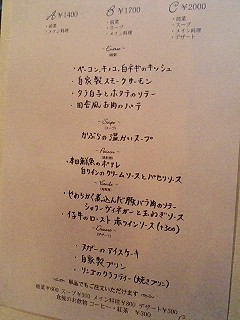 A ¥1400 B ¥1700 C ¥2000
・前菜 ・前菜 ・前菜
・メイン料理 ・スープ ・スープ
・メイン料理 ・メイン料理
・デザート
・ベーコン、キノコ、白ネギのキッシュ
・自家製スモークサーモン
・タラ白子とホタテのソテー
・田舎風お肉のパテ
~ Soupe ~
(スープ)
かぶらの温かいスープ
~ Poisson ~
・本日鮮魚のポワレ
白ワインのクリームソースとバセリソース
~ Viande ~
・やわらかく煮込んだ豚バラ肉のソテー
シェリーヴィネガーと玉ねぎソース
・仔牛のロースト 赤ワインソース (+300)
~ Dessert ~
・ヌガーのアイスケーキ
・自家製プリン
・リンゴのクラフティー (焼きプリン)
~ 単品でもご注文いただけます ~
前菜¥600 スープ¥300 メイン料理¥800 デザート¥300
食後のお飲物 コーヒー・紅茶 ¥300